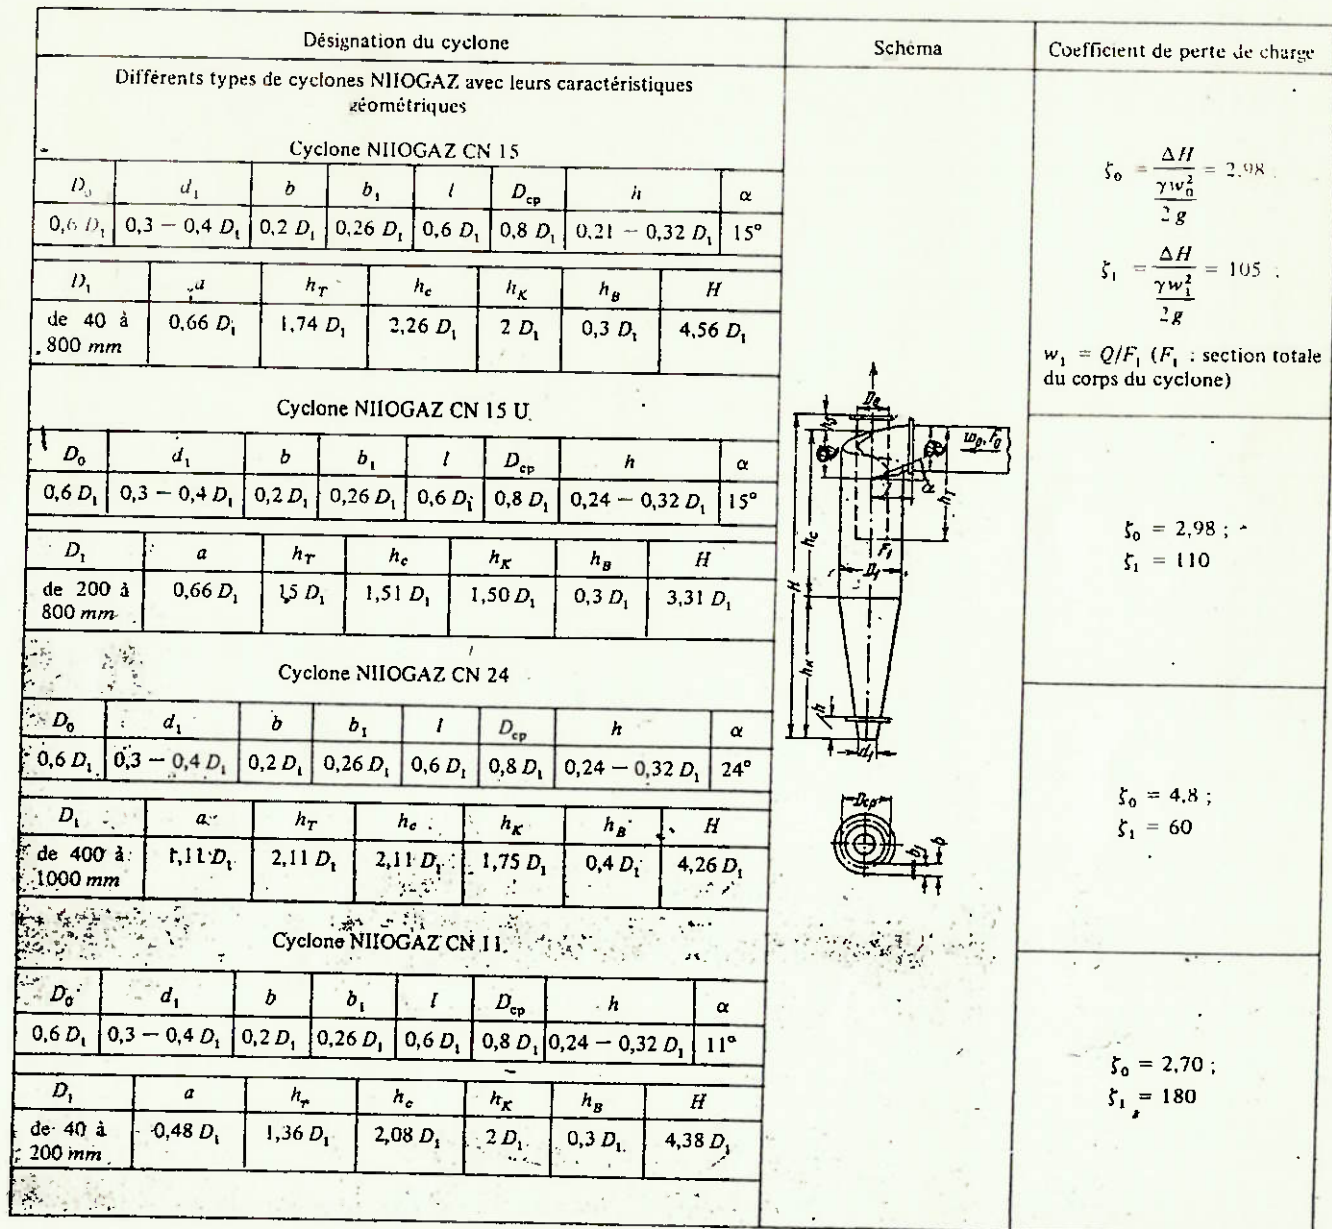 Désignation du cyclone
Schéma
Coefficient de perte de charge
Différents types de cyclones NIIOGAZ avec leurs caractéristiques
géométriques
Cyclone NIIOGAZ CN 15
D₀ d₁ b b₁ l D_cp h α
0,6 D₁ 0,3 − 0,4 D₁ 0,2 D₁ 0,26 D₁ 0,6 D₁ 0,8 D₁ 0,21 − 0,32 D₁ 15°
D₁ a h_T h_c h_K h_B H
de 40 à 0,66 D₁ 1,74 D₁ 2,26 D₁ 2 D₁ 0,3 D₁ 4,56 D₁
800 mm
Cyclone NIIOGAZ CN 15 U
D₀ d₁ b b₁ l D_cp h α
0,6 D₁ 0,3 − 0,4 D₁ 0,2 D₁ 0,26 D₁ 0,6 D₁ 0,8 D₁ 0,24 − 0,32 D₁ 15°
D₁ a h_T h_c h_K h_B H
de 200 à 0,66 D₁ 1,5 D₁ 1,51 D₁ 1,50 D₁ 0,3 D₁ 3,31 D₁
800 mm
Cyclone NIIOGAZ CN 24
D₀ d₁ b b₁ l D_cp h α
0,6 D₁ 0,3 − 0,4 D₁ 0,2 D₁ 0,26 D₁ 0,6 D₁ 0,8 D₁ 0,24 − 0,32 D₁ 24°
D₁ a h_T h_c h_K h_B H
de 400 à 1,11 D₁ 2,11 D₁ 2,11 D₁ 1,75 D₁ 0,4 D₁ 4,26 D₁
1000 mm
Cyclone NIIOGAZ CN 11
D₀ d₁ b b₁ l D_cp h α
0,6 D₁ 0,3 − 0,4 D₁ 0,2 D₁ 0,26 D₁ 0,6 D₁ 0,8 D₁ 0,24 − 0,32 D₁ 11°
D₁ a h_T h_c h_K h_B H
de 40 à 0,48 D₁ 1,36 D₁ 2,08 D₁ 2 D₁ 0,3 D₁ 4,38 D₁
200 mm
D₀
w₀, F₀
α
l
h_T
h_c
F₁
D₁
H
h_K
h
d₁
D_cp
b₁
b
ζ₀ = ΔH / (γw₀² / 2 g) = 2,98
ζ₁ = ΔH / (γw₁² / 2 g) = 105
w₁ = Q/F₁ (F₁ : section totale
du corps du cyclone)
ζ₀ = 2,98 ;
ζ₁ = 110
ζ₀ = 4,8 ;
ζ₁ = 60
ζ₀ = 2,70 ;
ζ₁ = 180